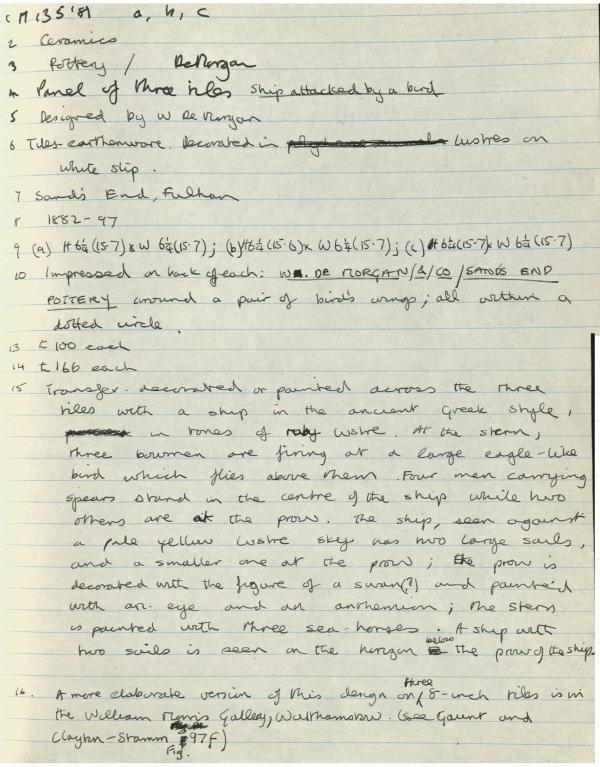 CM 135'81 a, b, c
2 Ceramics
3 Pottery / De Morgan
4 Panel of three tiles Ship attacked by a bird
5 Designed by W De Morgan
6 Tiles-earthenware. Decorated in lustres on
white slip.
7 Sand's End, Fulham
8 1882-97
9 (a) H 6¼ (15.7) x W 6¼ (15.7); (b) H 6¼ (15.6) x W 6¼ (15.7); (c) H 6¼ (15.7) x W 6¼ (15.7)
10 Impressed on back of each: W. DE MORGAN/&/CO/SANDS END
POTTERY around a pair of bird's wings; all within a
dotted circle.
13 £100 each
14 £166 each
15 Transfer-decorated or painted across the three
tiles with a ship in the ancient Greek style,
in tones of ruby lustre. At the stern,
three bowmen are firing at a large eagle-like
bird which flies above them. Four men carrying
spears stand in the centre of the ship while two
others are at the prow. The ship, seen against
a pale yellow lustre sky has two large sails,
and a smaller one at the prow; the prow is
decorated with the figure of a swan(?) and painted
with an eye and an anthemion; the stern
is painted with three sea-horses. A ship with
two sails is seen on the horizon below the prow of the ship.
16. A more elaborate version of this design on three 8-inch tiles is in
the William Morris Gallery, Walthamstow. (see Gaunt and
Clayton-Stamm Fig. 97F)